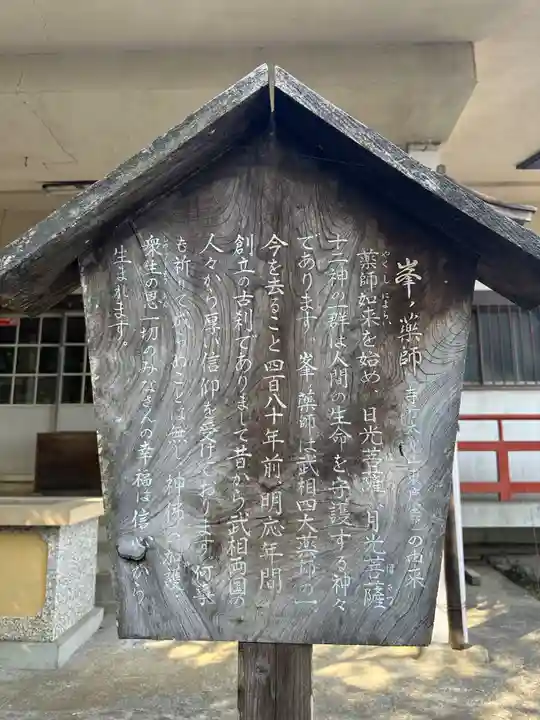 峯ノ薬師 の由来
薬師如来を始め、日光菩薩、月光菩薩
やくし にょらい ぼさつ
十二神の一群は人間の生命を守護する神々
であります。峯ノ薬師は武相四大薬師の一
今を去ること四百八十年前、明応年間
創立の古刹でありまして昔から武相両国の
人々から厚い信仰を受けております。何事
も祈りて
衆生の恩一切のみなさんの幸福は信心から
生まれます。